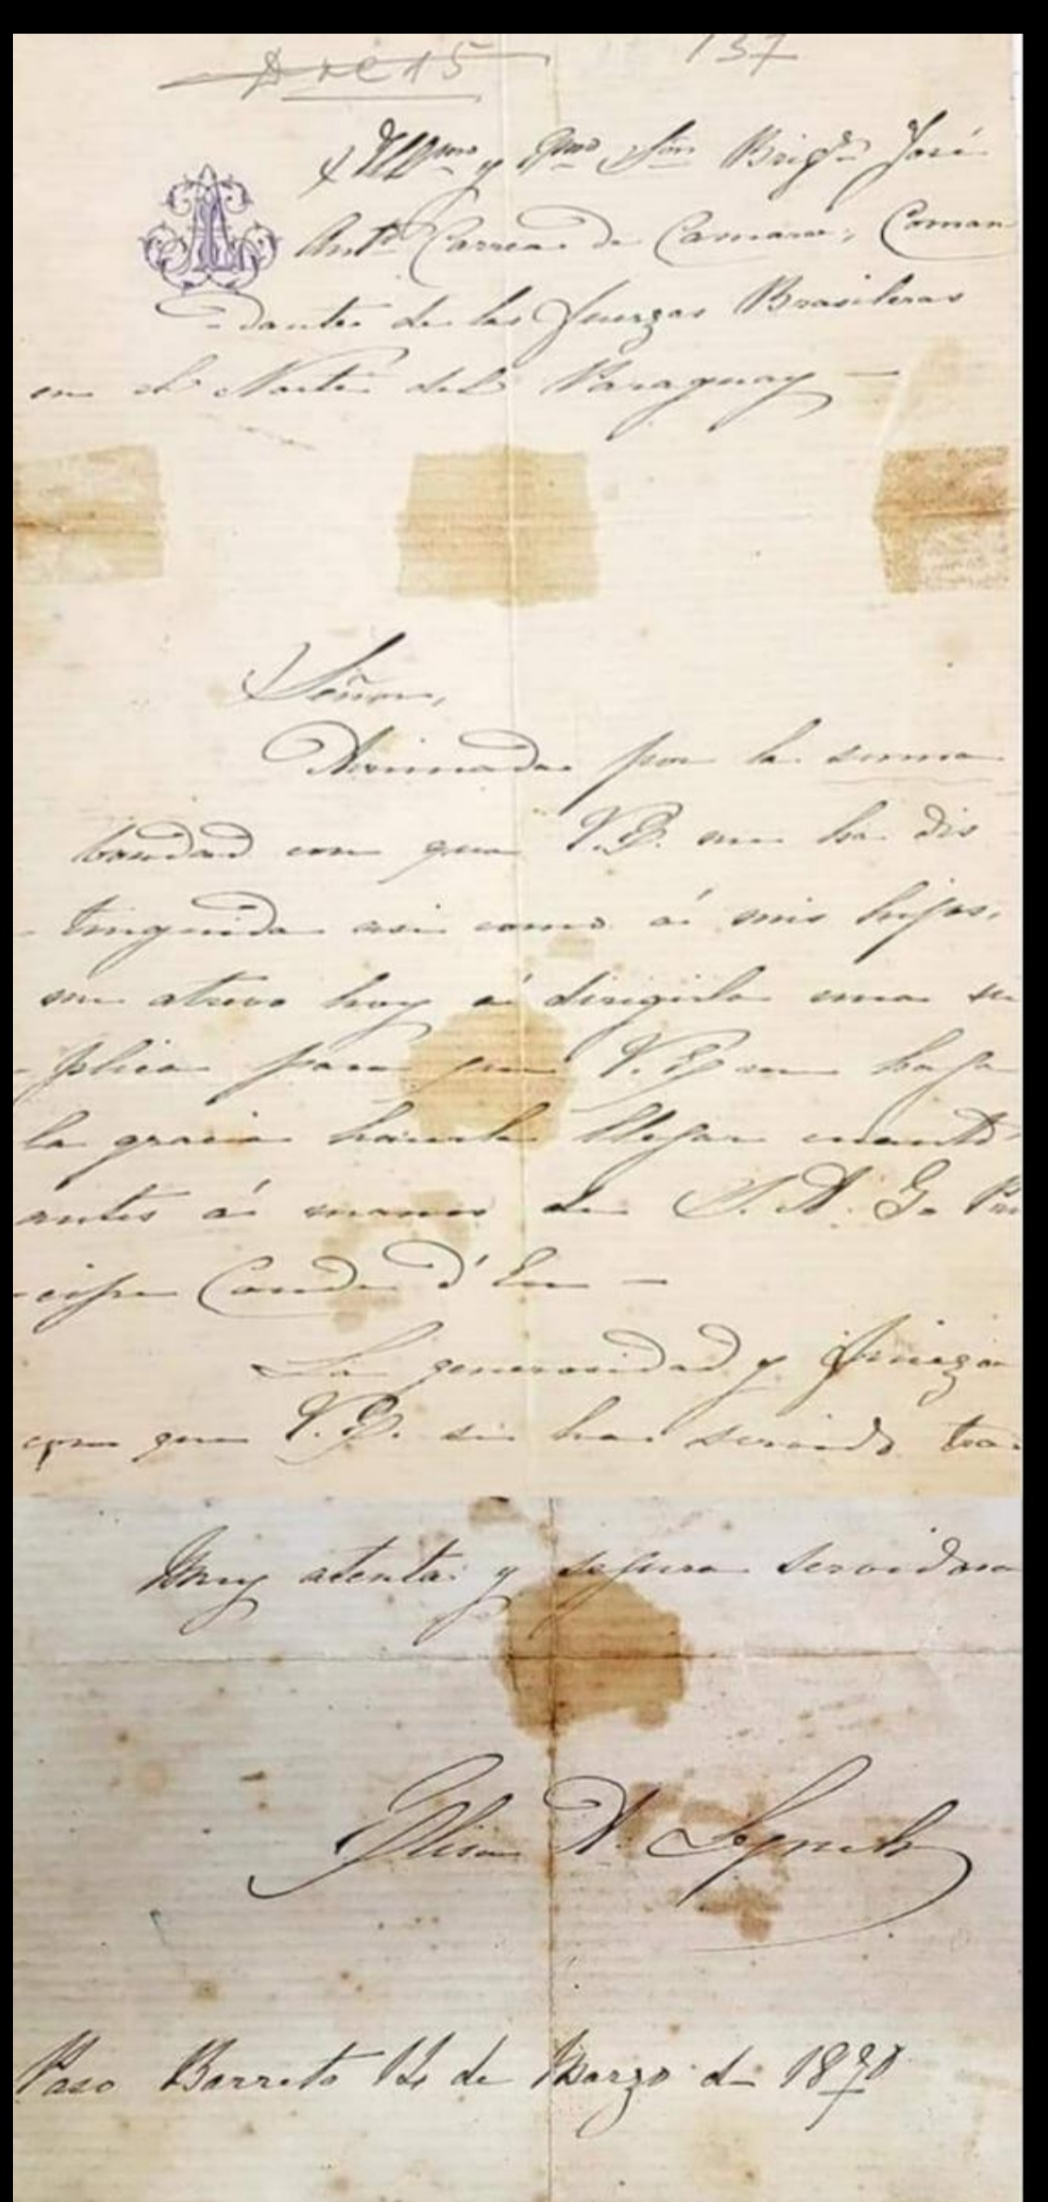 Doc 15
137
Illmo y Exmo Sñr Brigr José
Anto Correa da Camara, Coman
-dante de las fuerzas Brasileras
en el Norte del Paraguay —
Señor,
Animada por la suma
bondad con que V.E. me ha dis
-tinguido asi como á mis hijos,
me atrevo hoy á dirigirle una su
-plica para que V.E. me haga
la gracia hacerla llegar cuanto
antes á manos de S. A. Prin
-cipe Conde d'Eu —
La generosidad y
con que V.E. se ha servido tra
Muy atenta y segura servidora
Elisa A. Lynch
Paso Barreto de Marzo de 1870